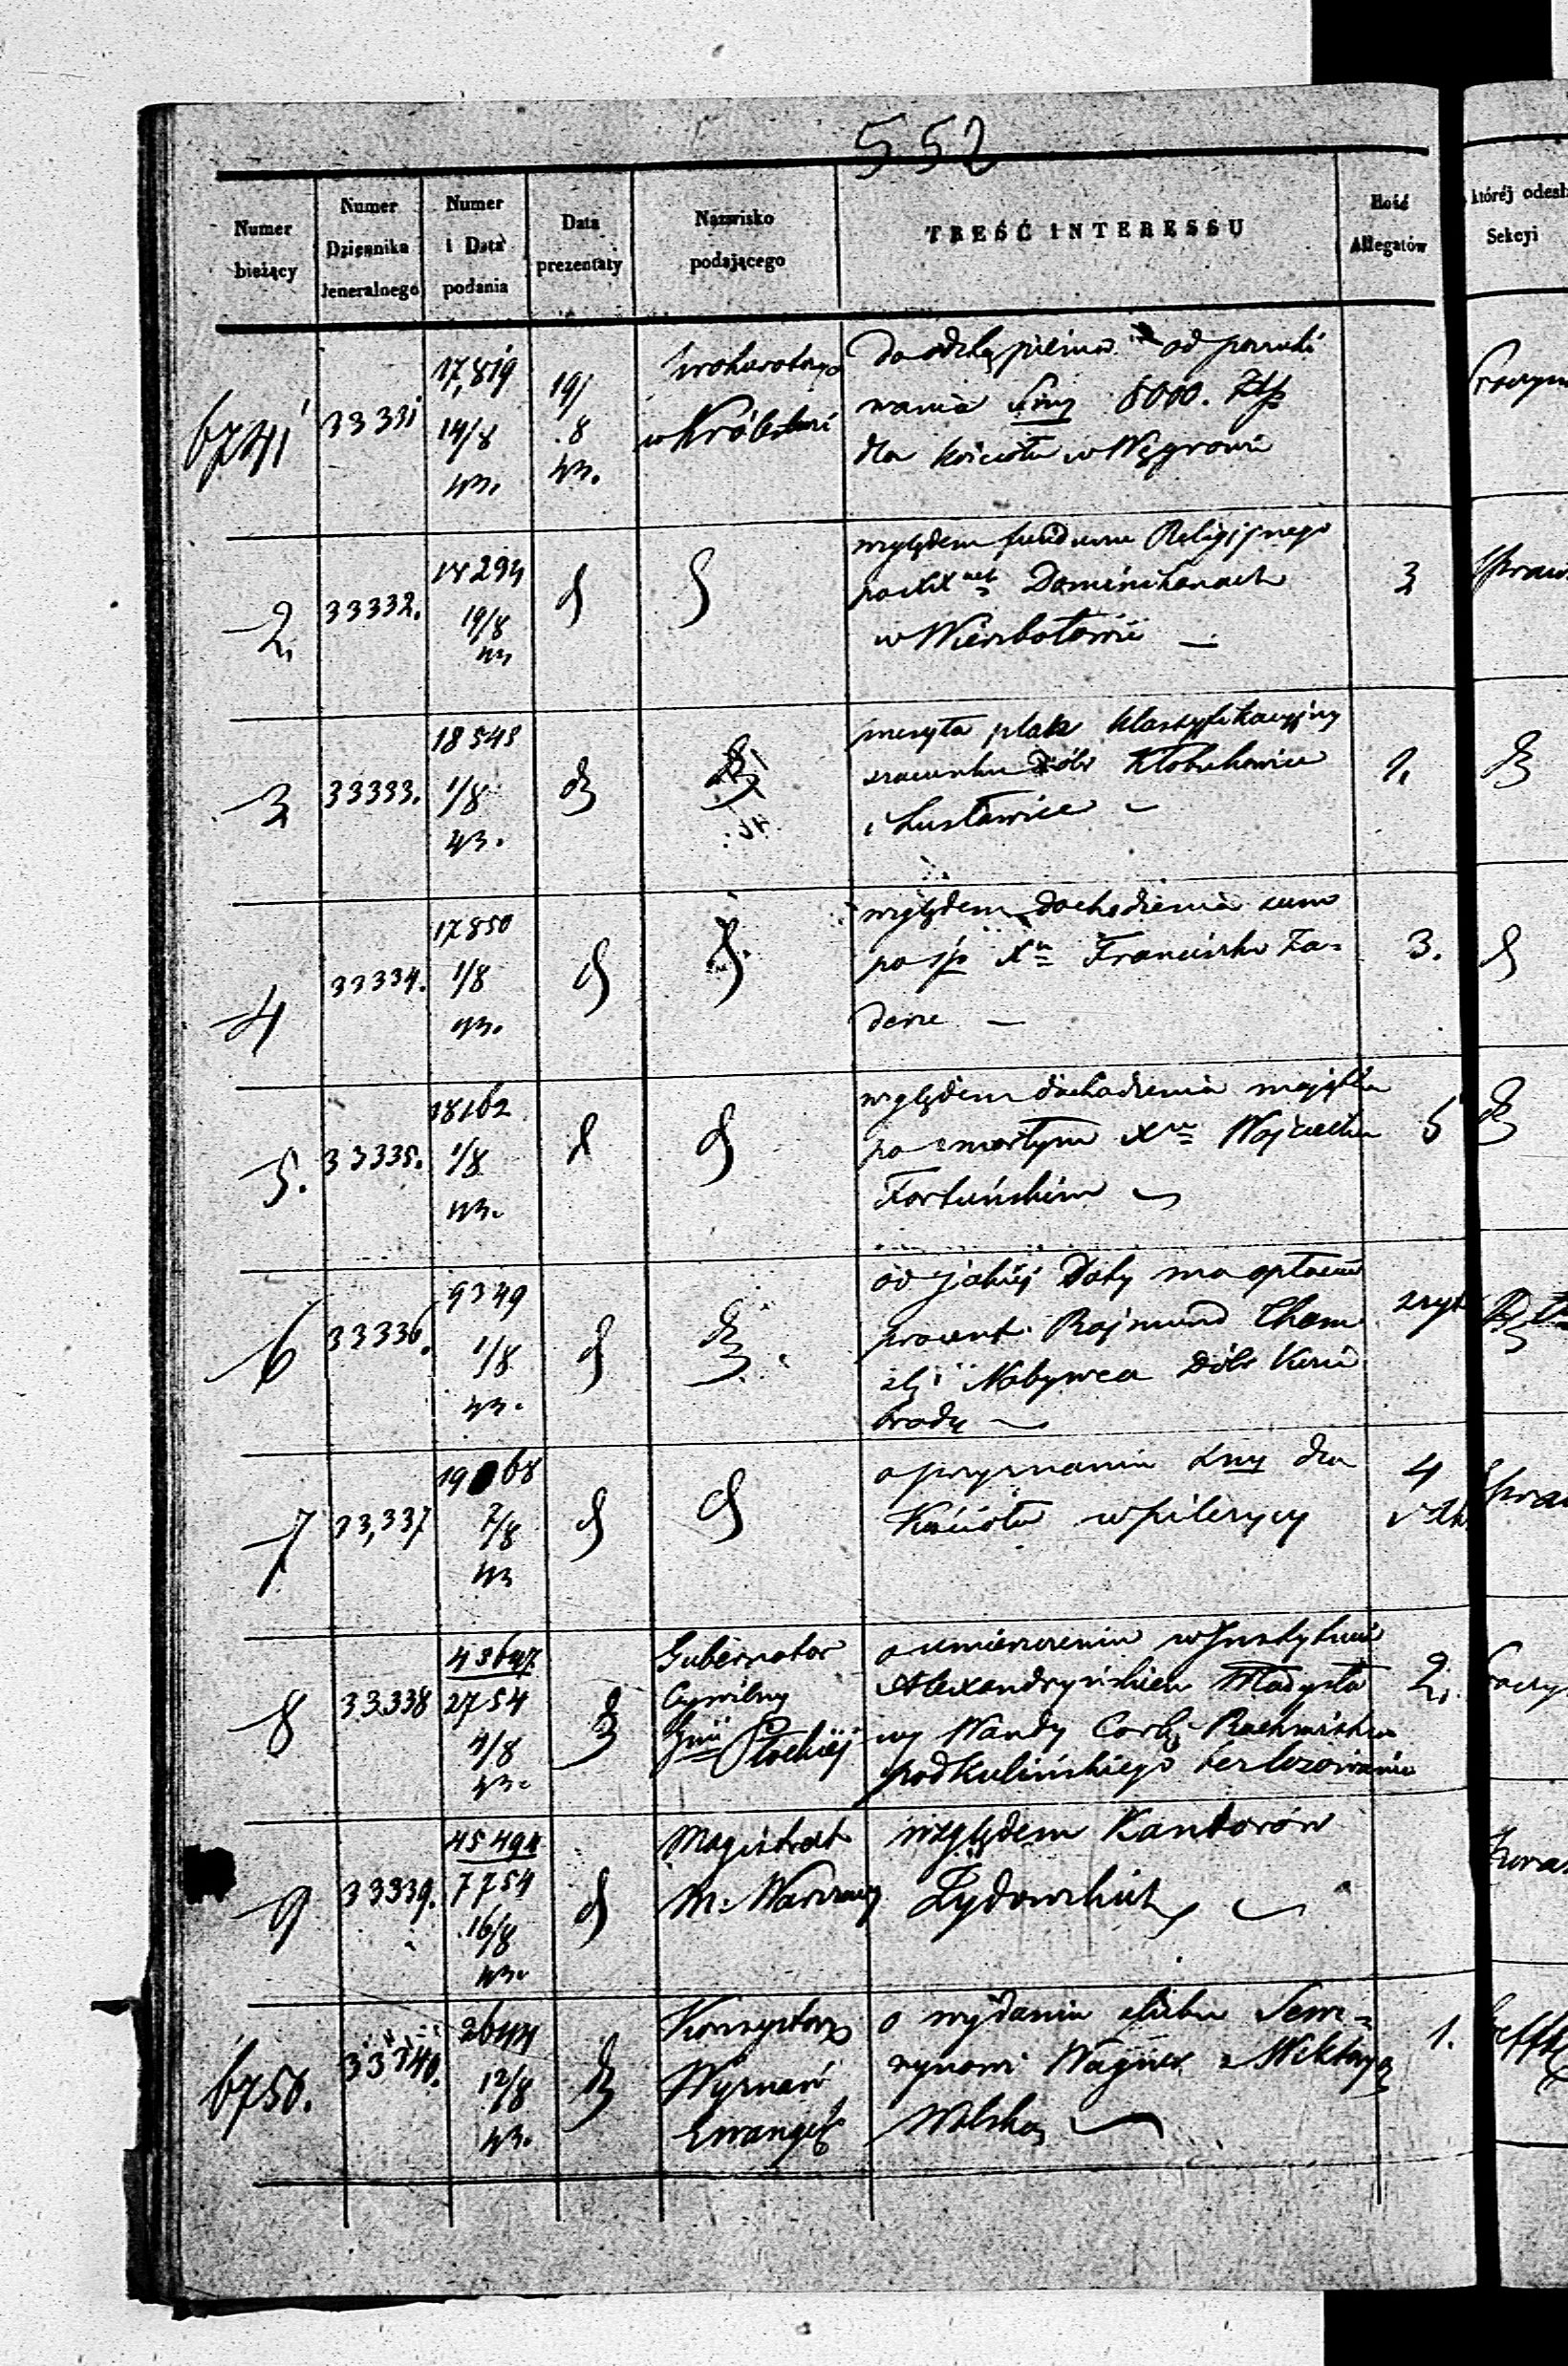 552
Numer bieżący
Numer Dziennika Jeneralnego
Numer i Data podania
Data prezentaty
Nazwisko podającego
TREŚĆ INTERESSU
Ilość Allegatów
któréj odesł
Sekcyi
6741
33331
17,819
14/8
43.
19/
8
43.
Prokuratorya
w Królestwi
do odstąpienia od poszuki
wania Smy 6000. Złp
dla kościoła w Węgrowie
2.
33332.
14294
19/8
43
względem funduszu Religijnego
po Dominikanach
w Wierzbołowie —
3
3
33333.
18545
1/8
43.
przesyła plan klassyfikacyjny
szacunku Dóbr Kłobukowice
i Lusławice
1.
4
33334.
17850
1/8
43.
względem dochodzenia sum
po śp Xu Franciszku Za=
derze —
3.
5.
33335.
18162
1/8
43.
względem dochodzenia majątku
po zmarłym Xu Wojciechu
Fortuńskim
5
6
33336.
9349
1/8
43.
od jakiéj Daty ma opłacać
procent Rajmund
Nabywca Dóbr
brody —
7
33,337
1968
2/8
43
o przyznanie Smy dla
Kościoła w Pilczycy
4
8
33338
43647
2754
4/8
43.
Gubernator
Cywilny
Gnii Płockiéj
o umieszczenie w Instytucie
Alexandryńskim Władysła
wy Wandy Corki Rachmistrza
Podkulińskiego bez losowania
2.
9
33339.
45494
7754
16/8
43.
Magistrat
M. Warszawy
względem Kantorów
Żydowskich
6750.
33340.
2644
12/8
43.
Konsystorz
Wyznań
Ewangel
o wydanie ślubu Sewe=
rynowi Wagner z Wiktoryą
Wilską
1.